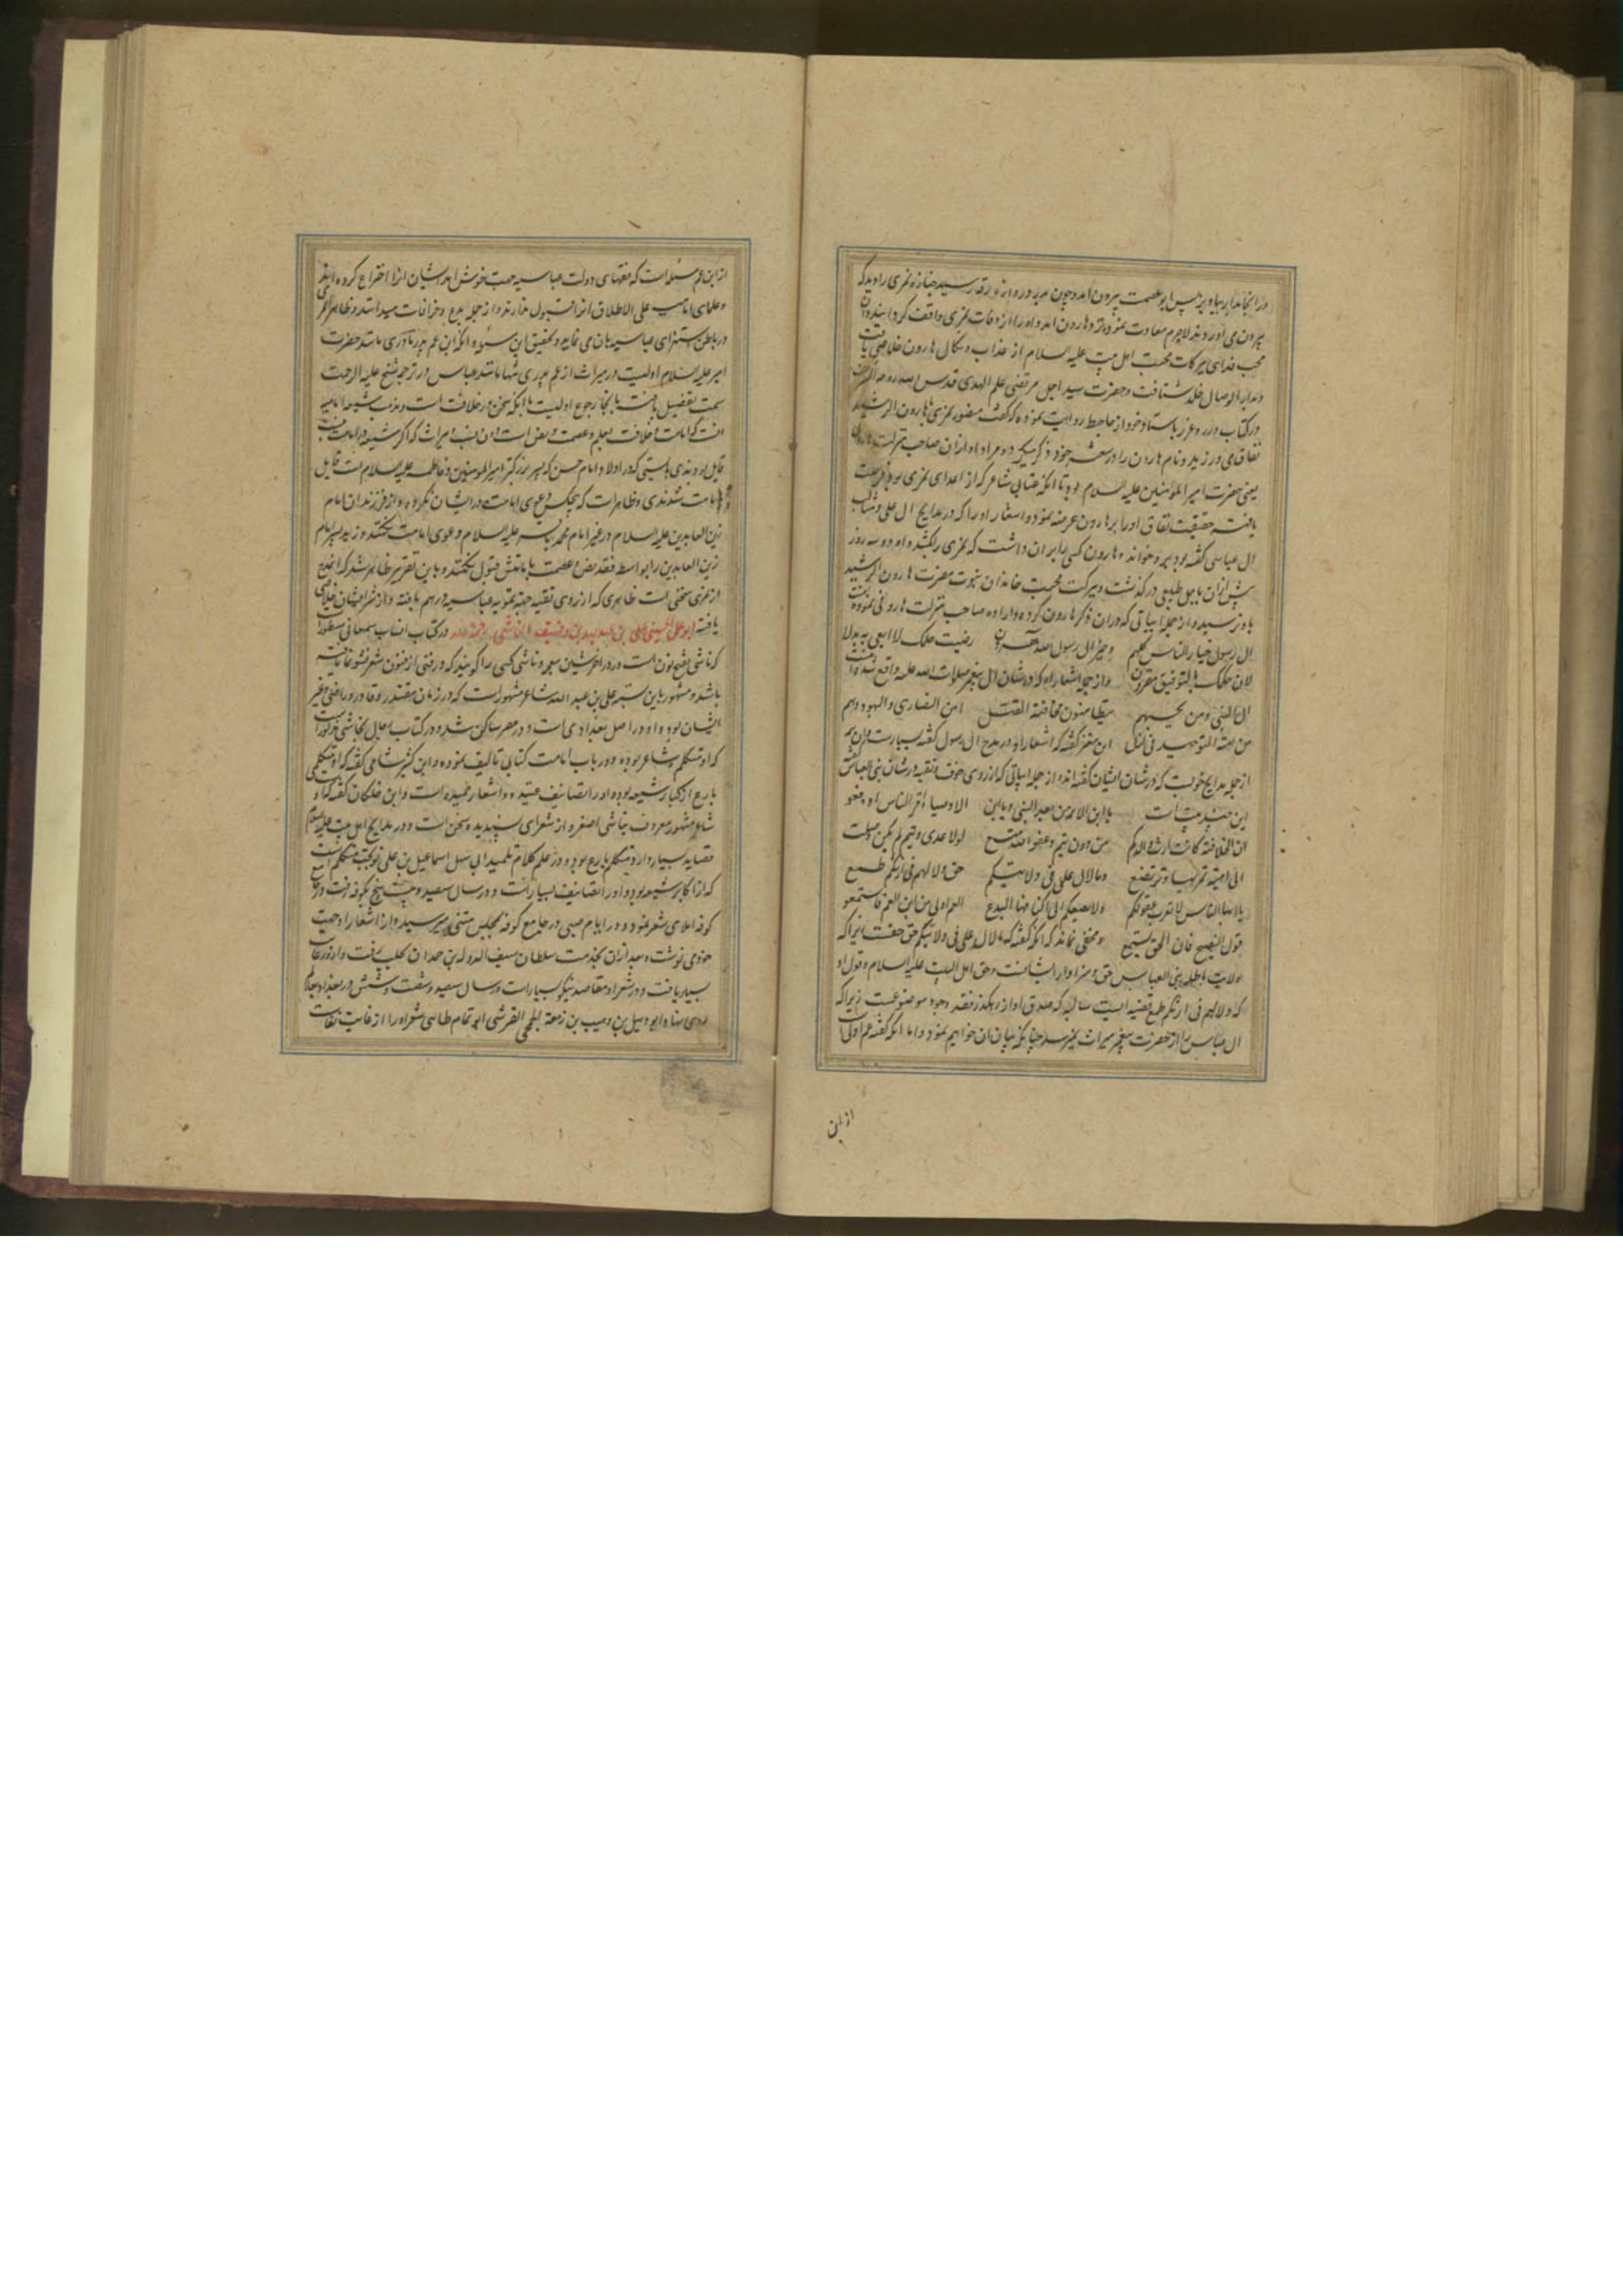 پیرون می آوردند لاجرم معاودت نموده و هارون امد و او را از وفات نمری واقف کردانید و ان
محب فدای ببرکات محبت اهل بیت علیه السلام از عذاب و نکال هارون خلاصی یافت
و بدار الوصال خلد شتافت و حضرت سید اجل مرتضی علم الهدی قدس الله روحه
در کتاب درر و غرر باستاد خود از جاحظ روایت نموده که گفت منصور نمری با هارون الرشید
نفاق می ورزید و نام هارون را در شعر خود ذکر میکرد و مراد او ازان صاحب منزلت هارونی
یعنی حضرت امیر المؤمنین علیه السلام بود تا انکه عتابی شاعر که از اعدای نمری بود فرصت
یافته حقیقت نفاق او را بر هارون عرضه نمود و اشعار او را که در مدایح ال علی و مثالب
ال عباس گفته بود برو خواند و هارون کسی را بر ان داشت که نمری را بکشد و او دو سه روز
پیش ازان باجل طبیعی درگذشت و ببرکت محبت خاندان نبوت مضرت هارون الرشید
باو نرسید و از جمله ابیاتی که دران ذکر هارون کرده و اراده صاحب منزلت هارونی نموده
ال رسول خیار الناس کلهم و خیر ال رسول الله هرون رضیت حکمک لا ابغی به بدلا
لان حکمک بالتوفیق مقرون و از جمله اشعار او که در شان ال پیغمبر صلوات الله علیه واقع شده
ال النبی و من یحبهم یتطامنون مخافة القتل امن النصاری و الیهود و هم
من امة التوحید فی ازل ابن معتز گفته که اشعار او در مدح ال رسول گفته بسیارست و ان
از جمله مدایح خوبست که در شان ایشان گفته اند و از جمله ابیاتی که از روی خوف و تقیه در شان بنی العباس
این چند بیت است یا ابن الائمة من بعد النبی و یا ابن الاوصیا اقر الناس او دفعوا
ان الخلافة کانت ارث والدکم من دون تیم و عفو الله متسع لولا عدی و تیم لم یکن وصلت
الی امیة تمریها و ترتضع و ما لال علی فی ولایتکم حق و لا لهم فی ارثکم طمع
یا ایها الناس لا تعزب عقولکم و لا تضفکم الی اکنافها البدع العم اولی من ابن العم فاستمعوا
قول النصیح فان الحق یستمع و مخفی نماند که انکه گفته که ما لال علی فی ولایتکم حق حقست زیرا که
ولایت باطله بنی العباس حق و سزاوار ایشانست و حق اهل البیت علیه السلام و قول او
که و لا لهم فی ارثکم طمع قضیه ایست سالبه که صدق او از رهکذر فقد وجود موضوعست زیرا که
ال عباس را از حضرت پیغمبر میراث نمیرسد چنانکه بیان ان خواهیم نمود و اما انکه گفته عم اولی
از ابن
از ابن عم مسئله است که فقهای دولت عباسیه جهت خوش امد ایشان انرا اختراع کرده اند
و علمای امامیه علی الاطلاق انرا قبول ندارند و از جمله بدع و خرافات میدانند و ظاهرا نمری
در باطن استهزای عباسیه بان می نماید و تحقیق این مسئله انکه ابن عم پدر مادری مانند حضرت
امیر علیه السلام اولیست در میراث از عم پدری تنها مانند عباس و در ترجمه شیخ علیه الرحمه
سمت تفصیل یافت بانجا رجوع اولیست با انکه سخن در خلافت است و مذهب شیعه امامیه
انست که امامت و خلافت بعلم و عصمت و نص است
قایل بودندی بایستی که در اولاد امام حسن که پسر بزرگتر امیر المؤمنین و فاطمه علیه السلام است قایل
بامامت شدندی و ظاهرست که هیچکس دعوی امامت در ایشان نکرده و از فرزندان امام
زین العابدین علیه السلام در غیر امام محمد باقر علیه السلام دعوی امامت نکفتند و زید پسر امام
زین العابدین را بواسطه فقد نص و عصمت بامامتش قبول نکفتند و باین تقریر ظاهر شد که انچه
از نمری سختی است ظاهری که از روی تقیه جهة تمویه عباسیه درهم بافته و از شر ایشان خلاصی
یافته ابو علی الحسینی علی بن عبد الله بن وصیف الناشی رحمه الله در کتاب انساب سمعانی مسطور است
که ناشی بفتح نون است و در اخر شین معجمه و ناشی کسی را گویند که در فنی از فنون شعر نشو و نما یافته
باشد و مشهور باین نسبت علی بن عبد الله شاعر مشهور است که در زمان مقتدر و قادر و راضی و غیر
ایشان بوده و او در اصل بغدادی است و در مصر ساکن شد و در کتاب رجال نجاشی مذکور است
که او متکلم و شاعر بوده و در باب امامت کتابی تالیف نموده و ابن کثیر شامی گفته که او متکلمی
بارع از کبار شیعه بود و او را تصانیف عدیده و اشعار حمیده است و ابن خلکان گفته که او
شاعر مشهور معروف بناشی اصغر و از شعرای پسندیده سخن است و در مدایح اهل بیت علیه السلام
قصاید بسیار دارد و متکلم بارع بود و در علم کلام تلمیذ ابی سهل اسماعیل بن علی نوبخت متکلم است
که از اکابر شیعه بود و او را تصانیف بسیار است و در سال سیصد و بیست پنج بکوفه رفت و در جامع
کوفه املای شعر نمود و در ایام صبی در جامع کوفه بمجلس متنبی میرسید و از اشعار او جهت
خود می نوشت و بعد ازان بخدمت سلطان سیف الدوله بن حمدان بحلب رفت و از و رعایت
بسیار یافت و در شعر او مقاصد نیکو بسیار است و در سال سیصد و شصت و شش در بغداد بعالم
روی نهاد ابو دهبل بن وهیب بن زمعة الجمحی القرشی ابو تمام طائی شعر او را از غایت نفاست